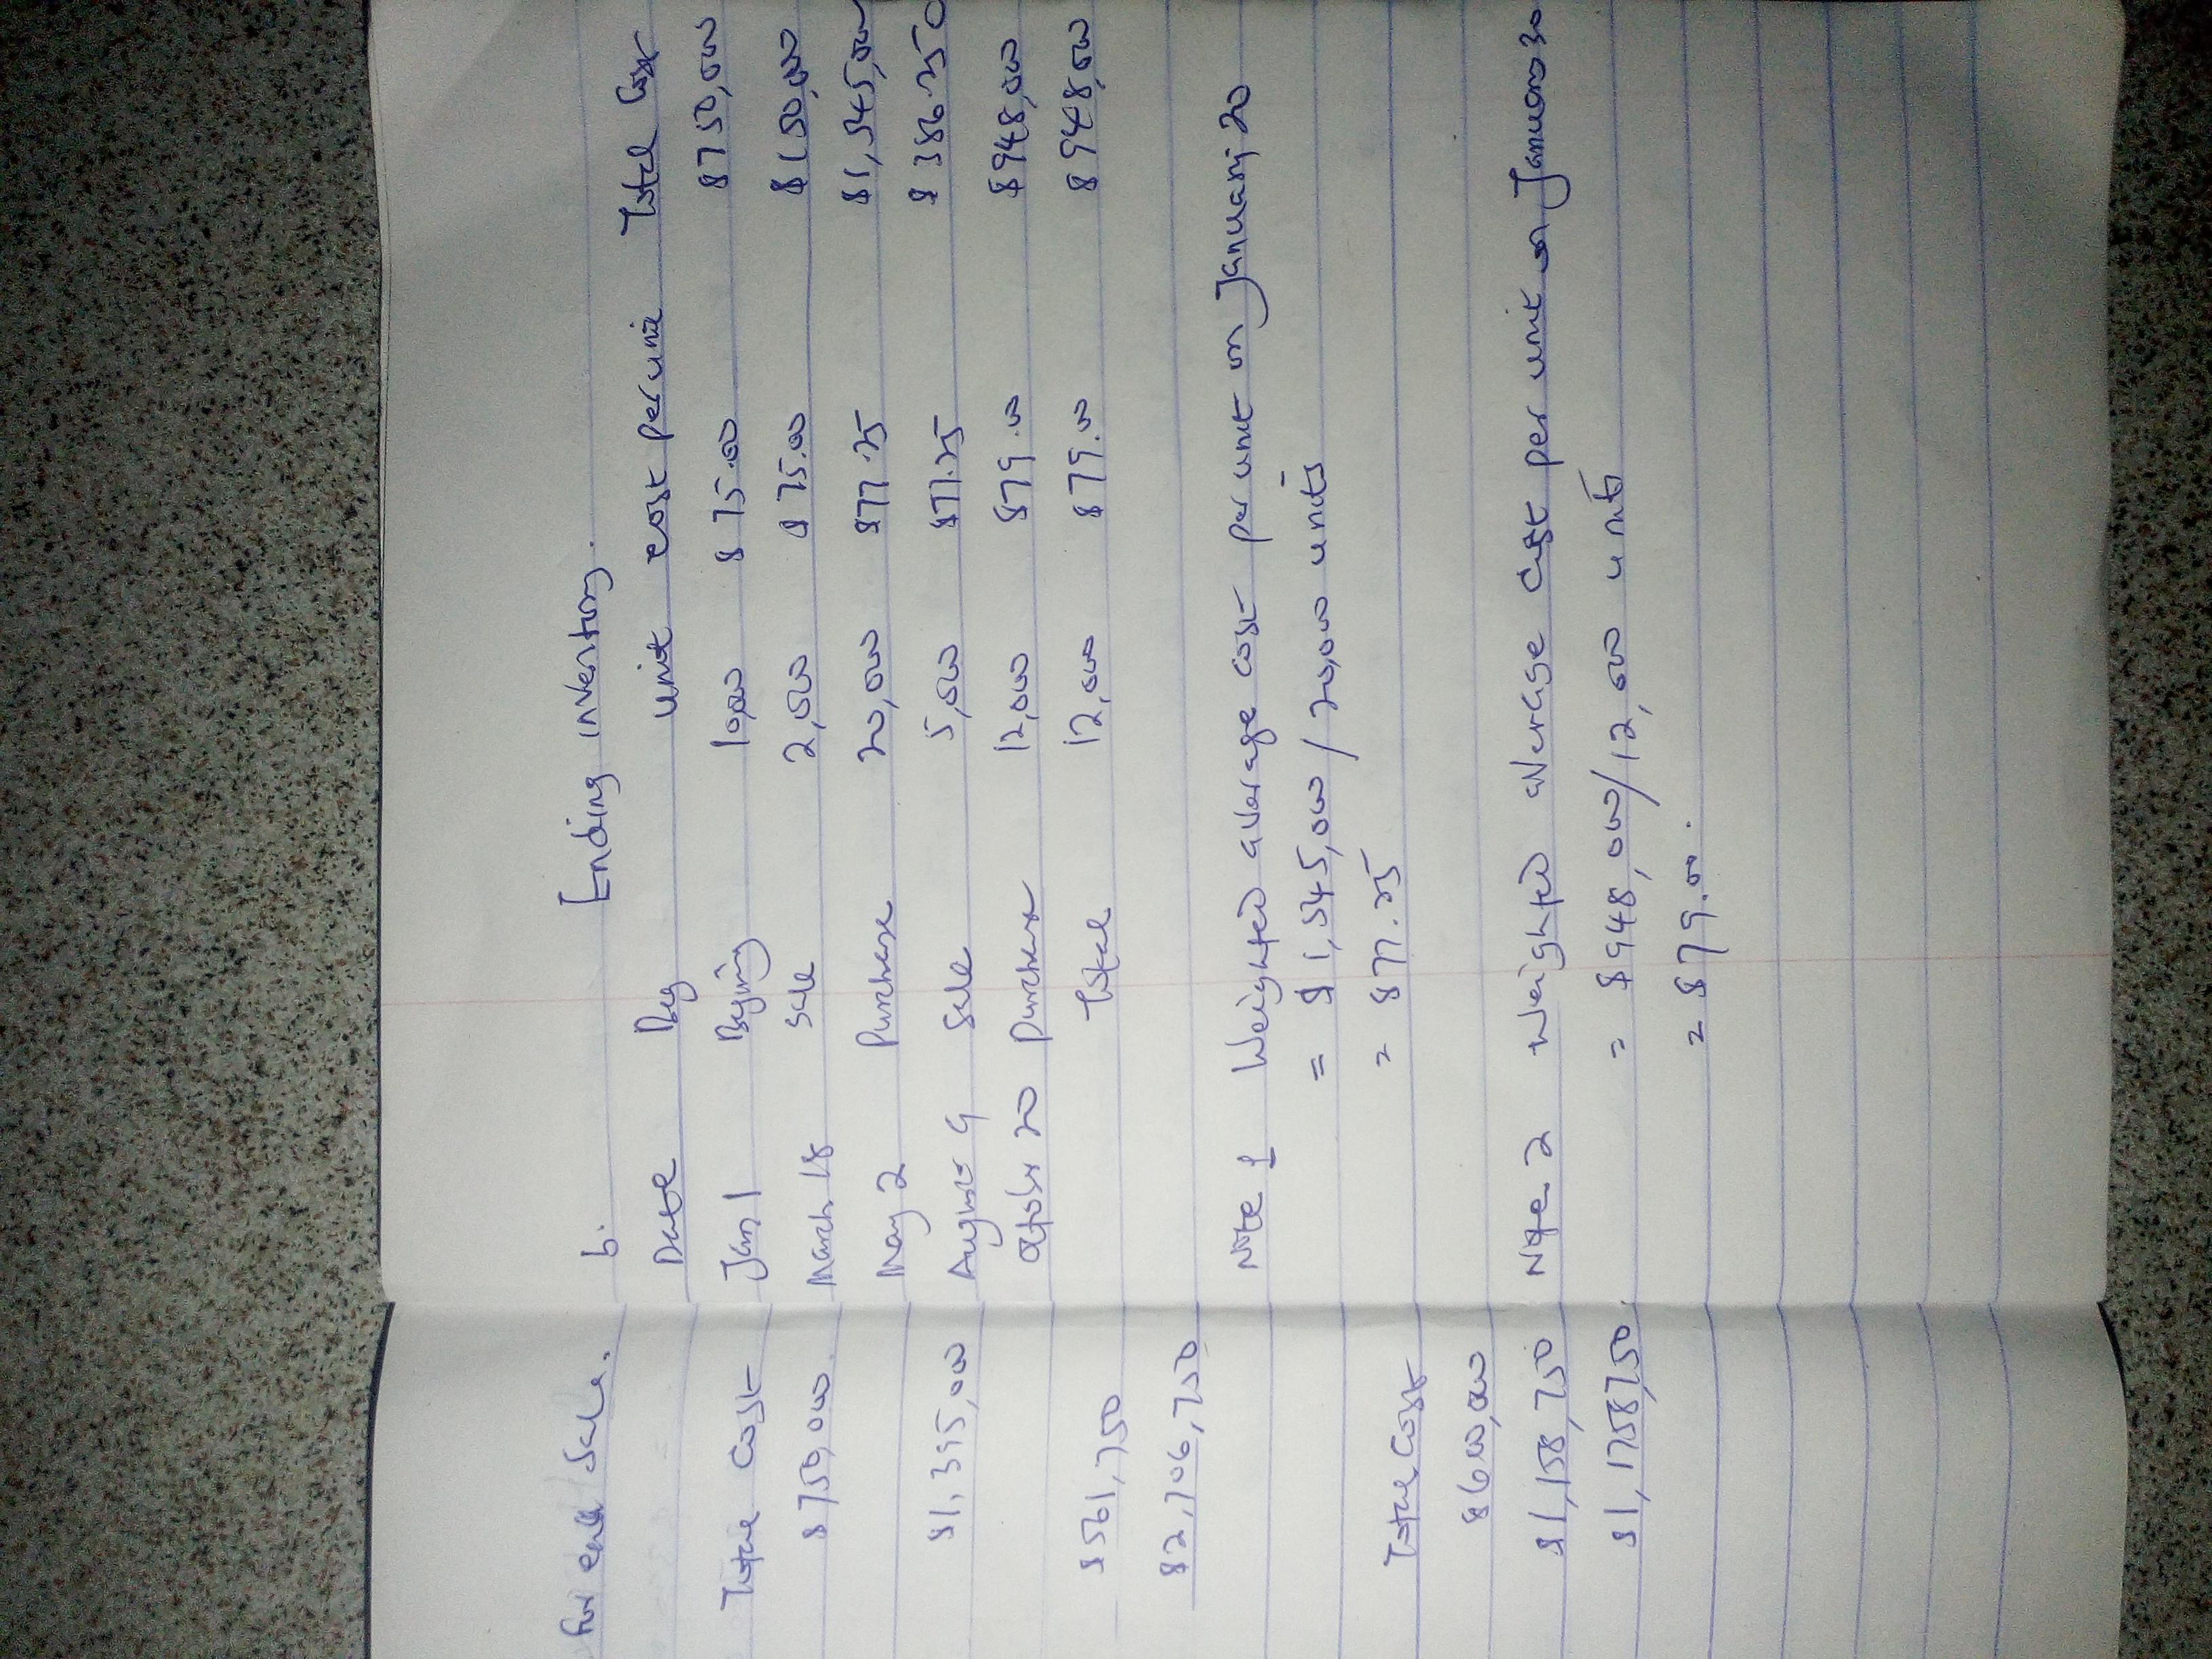 for each sale.
Total Cost
$750,000.
$1,395,000
$561,750
$2,706,750
Total Cost
$600,000
$1,158,750
$1,1758,750.
b. Ending inventory.
Date unit cost per unit Total Cost
Jan 1 1000 $75.00 $750,000
March 18 Sale 2,000 $75.00 $150,000
May 2 Purchase 20,000 $77.25 $1,545,000
August 9 Sale 5,000 $77.25 $386.250
October 20 purchase 12,000 $79.00 $948,000
Total 12,000 $79.00 $948,000
Note 1 Weighted average cost per unit on January 20
= $1,545,000 / 20,000 units
= $77.25
Note 2 Weighted average Cost per unit on January 30
= $948,000/12,000 units
= $79.00.